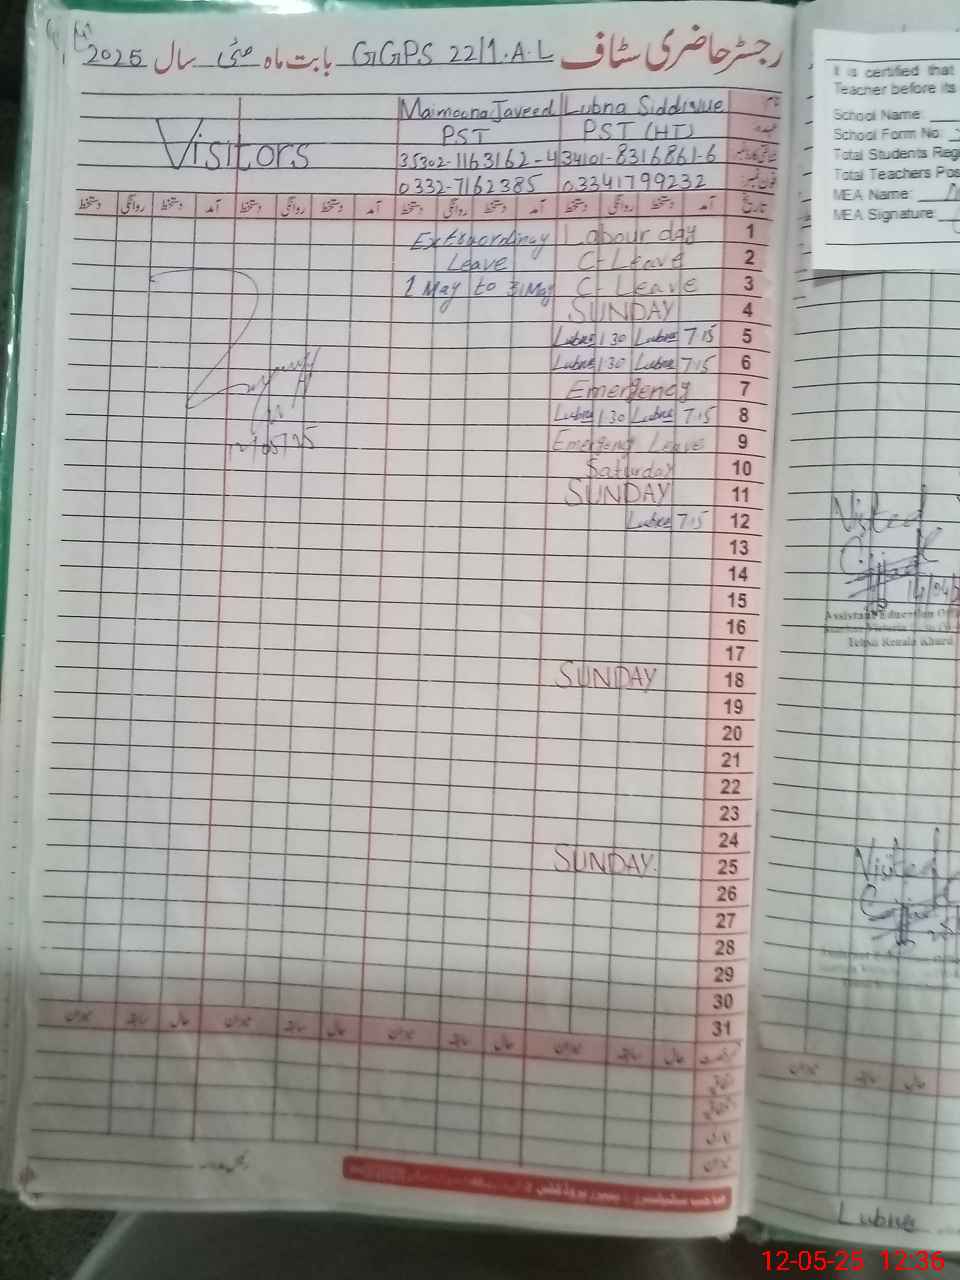 رجسٹر حاضری سٹاف GGPS 22/1.A.L بابت ماہ مئی سال 2025
Visitors
Maimoona Javeed Lubna Siddique نام
PST PST (HT) عہدہ
35302-1163162-4 34101-8316861-6
0332-7162385 03341799232 فون نمبر
تاریخ آمد دستخط روانگی دستخط آمد دستخط روانگی دستخط آمد دستخط روانگی دستخط آمد دستخط روانگی دستخط
1 Labour day Extraordinay
2 C-Leave Leave
3 C-Leave 1 May to 31 May
4 SUNDAY
5 7:15 Lubna 1:30 Lubna
6 7:15 Lubna 1:30 Lubna
7 Emergency
8 7:15 Lubna 1:30 Lubna
9 Emergency Leave
10 Saturday
11 SUNDAY
12 7:15 Lubna
13
14
15
16
17
18 SUNDAY
19
20
21
22
23
24
25 SUNDAY
26
27
28
29
30
31
حال سابقہ میزان حال سابقہ میزان حال سابقہ میزان
میزان
It is certified that
Teacher before its
School Name:
School Form No.
Total Students Reg
Total Teachers Pos
MEA Name:
MEA Signature:
Visited
14/04/2
Assistant Education Off
Visited
حال سابقہ میزان
Lubna
12-05-25 12:36